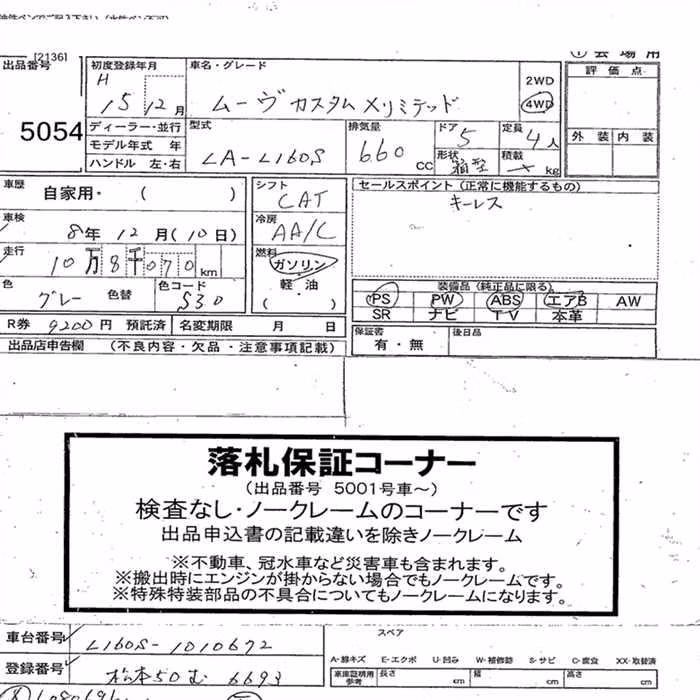 [2136]
① 会場用
出品番号
5054
初度登録年月
H 15 12月
車名・グレード
ムーヴカスタムXリミテッド
2WD
4WD
評価点
外装 内装
ディーラー・並行
モデル年式 年
ハンドル 左・右
型式
LA-L160S
排気量
660 cc
ドア 5
形状 箱型
定員 4人
積載 kg
車歴
自家用・ ( )
シフト
CAT
セールスポイント (正常に機能するもの)
キーレス
車検
8年 12月(10日)
冷房
AA/C
走行
10万8千070km
燃料
ガソリン
軽・油
( )
色
グレー 色替
色コード
S30
装備品 (純正品に限る)
PS PW ABS エアB AW
SR ナビ TV 本革
R券 9200円 預託済 名変期限 月 日
保証書
有・無
後日品
出品店申告欄 (不良内容・欠品・注意事項記載)
落札保証コーナー
(出品番号 5001号車～)
検査なし・ノークレームのコーナーです
出品申込書の記載違いを除きノークレーム
※不動車、冠水車など災害車も含まれます。
※搬出時にエンジンが掛からない場合でもノークレームです。
※特殊特装部品の不具合についてもノークレームになります。
車台番号 L160S-1010672
スペア
登録番号 松本50む 6693
A-線キズ E-エクボ U-凹み W-補修跡 S-サビ C-腐食 XX-取替済
車庫証明用参考 長さ cm 幅 cm 高さ cm